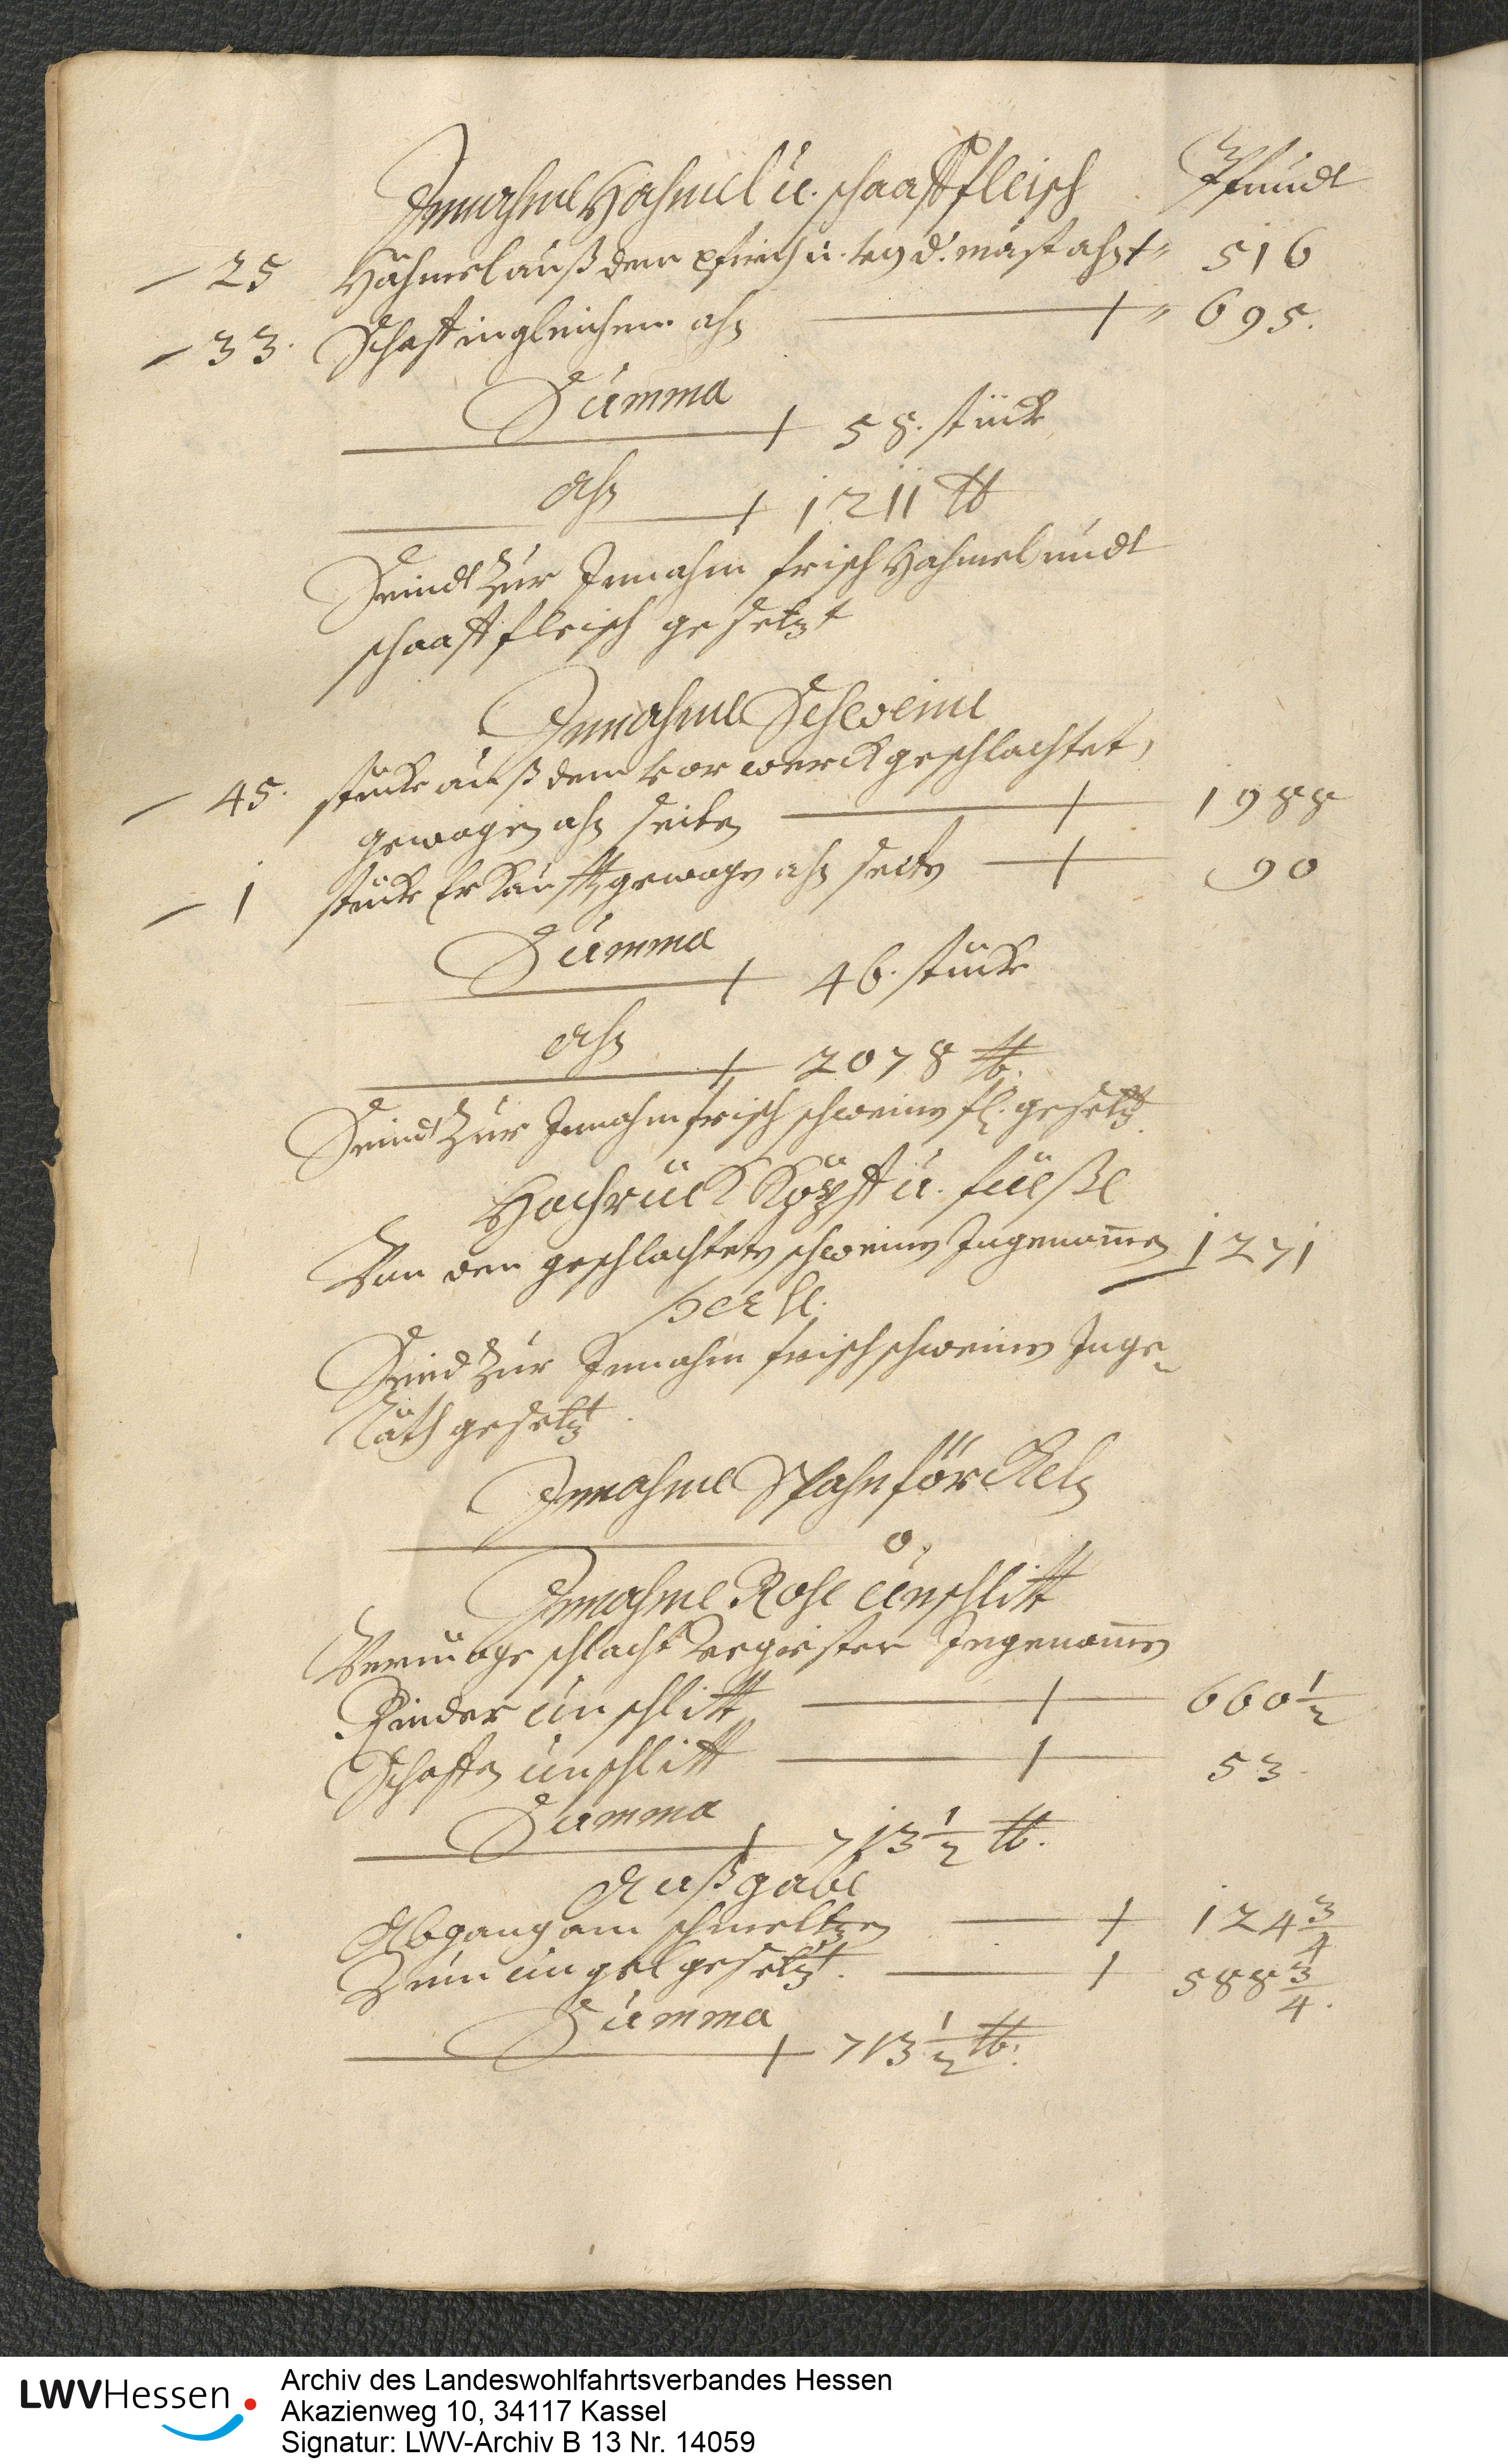 Innahme Hahmel u. schaaffleisch Pfundt
25 Hähmel auß dem pfirch u. von d. mast ahn 516
33. Schaff ingleichem ahn 695.
Summa 58. stück
ahn 1211 ℔
Seindt zur Innahm frisch Hahmel undt
schaaffleisch gesetzt
Innahme Schweine
45. stück auß dem vorwerck geschlachtet,
gewogen ahn seiten 1988
1 stück Erkaufft, gewogen ahn seiten 90
Summa 46. stück
ahn 2078 ℔.
Seindt zur Innahm frisch schweinen fl. gesetzt.
Hochrück Köpff u. füeße
Von den geschlachten schweinen Ingenom̄en 1271
per se.
Seind zur Innahm frisch schweinen Inge-
räth gesetzt.
Innahme Spahnförckeln
0.
Innahme Rohe unschlitt
Vermöge schlacht Register Ingenom̄en
Rinder unschlitt 660 1/2
Schaffen unschlitt 53.
Summa 713 1/2 ℔.
Außgabe
Abgang am schmeltzen 124 3/4
Zum ungel gesetzt. 588 3/4.
Summa 713 1/2 ℔.
LWVHessen
Archiv des Landeswohlfahrtsverbandes Hessen
Akazienweg 10, 34117 Kassel
Signatur: LWV-Archiv B 13 Nr. 14059